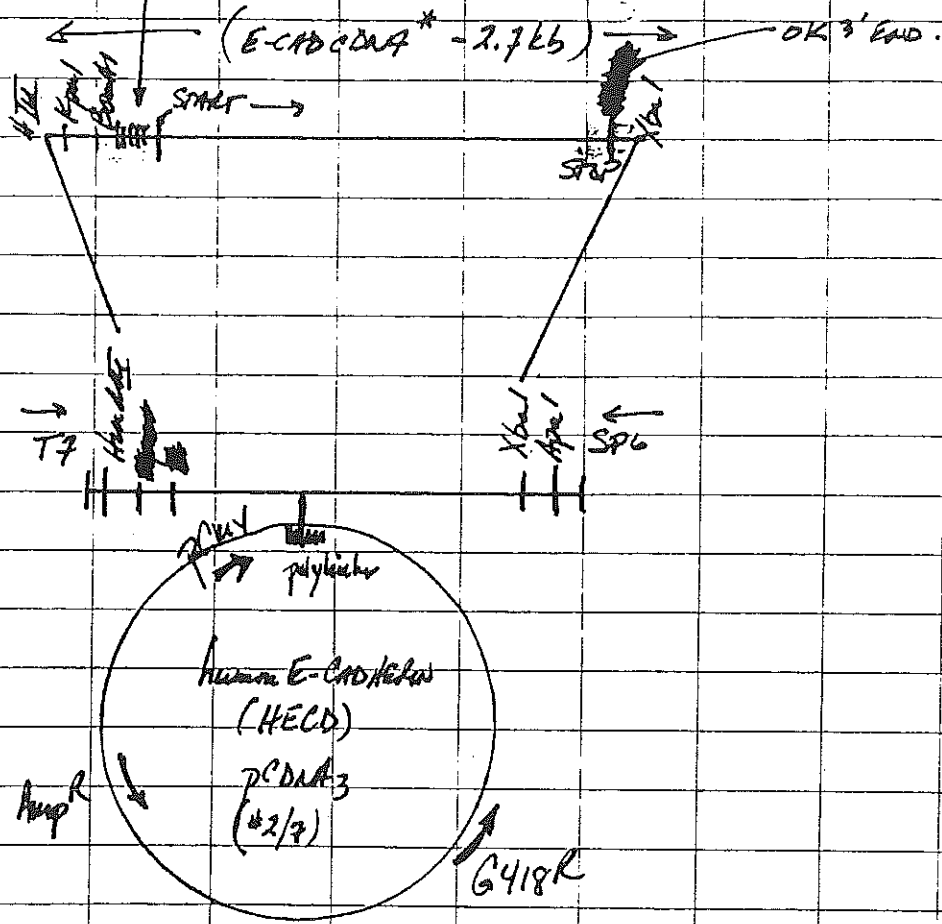 (E-CAD cDNA* - 2.7kb)
OK 3' END.
H III
Kpn1
BamH1
START →
STOP
Xba1
HindIII
Xba1
Apa1
T7
SP6
pCMV
polylinker
human E-CADHERIN
(HECD)
pCDNA3
(#2/7)
AmpR
G418R